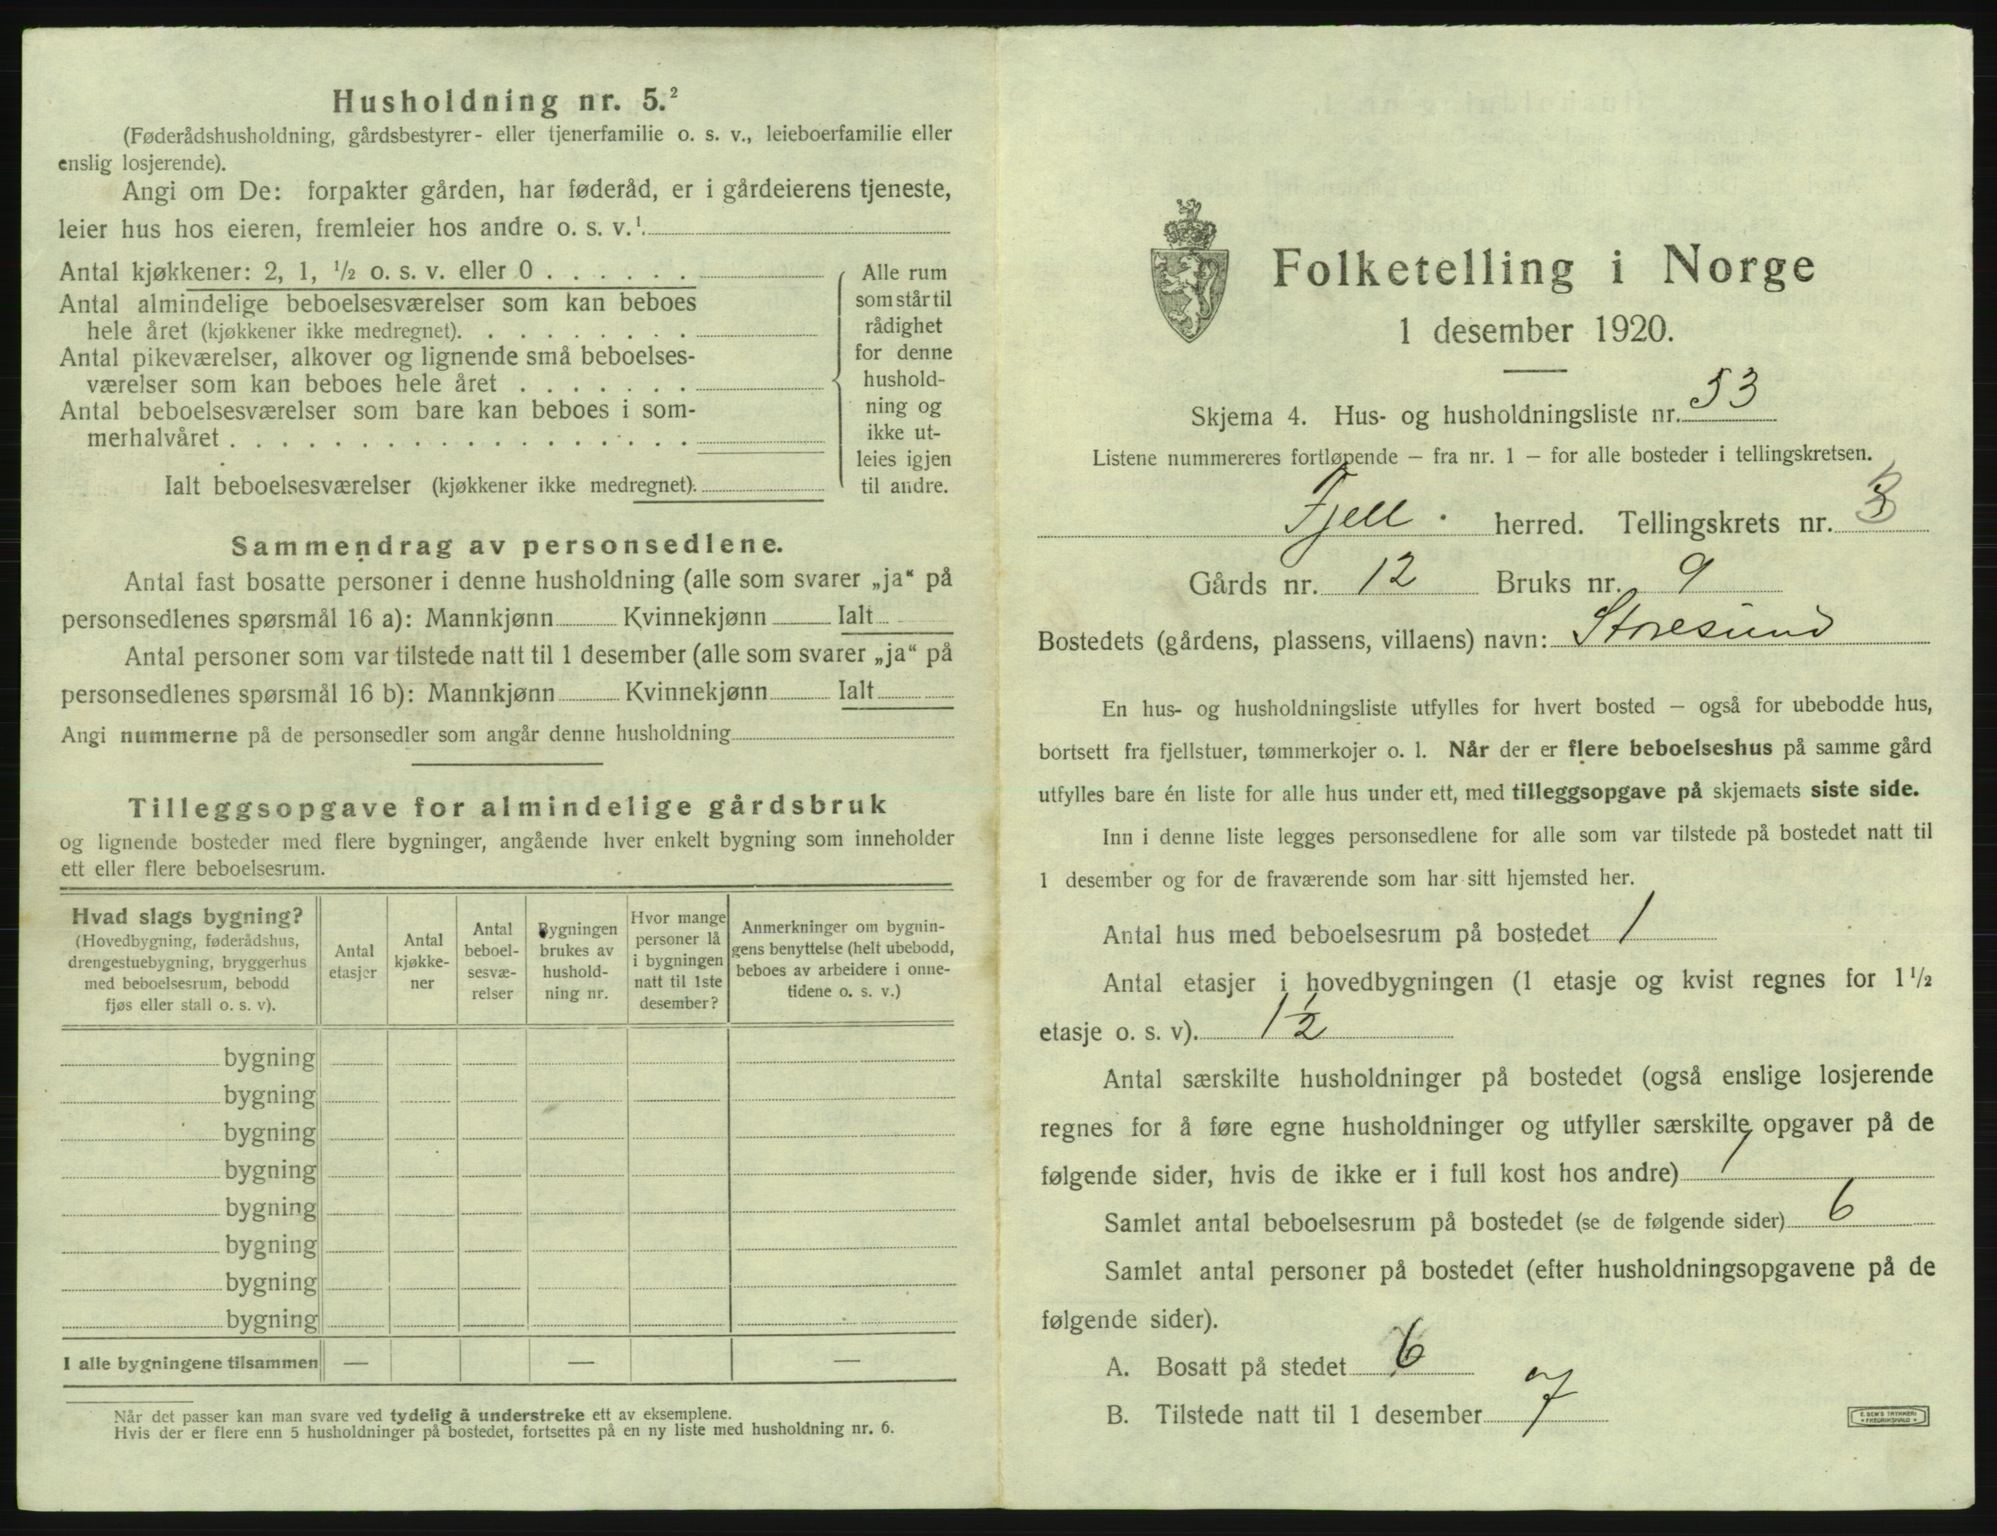 Husholdning nr. 5.²
(Føderådshusholdning, gårdsbestyrer- eller tjenerfamilie o. s. v., leieboerfamilie eller
enslig losjerende).
Angi om De: forpakter gården, har føderåd, er i gårdeierens tjeneste,
leier hus hos eieren, fremleier hos andre o. s. v.¹
Antal kjøkkener: 2, 1, ½ o. s. v. eller 0 . . . . . .
Antal almindelige beboelsesværelser som kan beboes
hele året (kjøkkener ikke medregnet). . . . . . . . .
Antal pikeværelser, alkover og lignende små beboelses-
værelser som kan beboes hele året . . . . . . .
Antal beboelsesværelser som bare kan beboes i som-
merhalvåret . . . . . . . . . . . . . . . . . .
Ialt beboelsesværelser (kjøkkener ikke medregnet).
Alle rum
som står til
rådighet
for denne
hushold-
ning og
ikke ut-
leies igjen
til andre.
Sammendrag av personsedlene.
Antal fast bosatte personer i denne husholdning (alle som svarer „ja“ på
personsedlenes spørsmål 16 a): Mannkjønn Kvinnekjønn Ialt
Antal personer som var tilstede natt til 1 desember (alle som svarer „ja“ på
personsedlenes spørsmål 16 b): Mannkjønn Kvinnekjønn Ialt
Angi nummerne på de personsedler som angår denne husholdning
Tilleggsopgave for almindelige gårdsbruk
og lignende bosteder med flere bygninger, angående hver enkelt bygning som inneholder
ett eller flere beboelsesrum.
Hvad slags bygning?
(Hovedbygning, føderådshus,
drengestuebygning, bryggerhus
med beboelsesrum, bebodd
fjøs eller stall o. s. v).
Antal
etasjer
Antal
kjøkke-
ner
Antal
beboel-
sesvæ-
relser
Bygningen
brukes av
hushold-
ning nr.
Hvor mange
personer lå
i bygningen
natt til 1ste
desember?
Anmerkninger om bygnin-
gens benyttelse (helt ubebodd,
beboes av arbeidere i onne-
tidene o. s. v.)
bygning
bygning
bygning
bygning
bygning
bygning
bygning
bygning
I alle bygningene tilsammen — — —
Når det passer kan man svare ved tydelig å understreke ett av eksemplene.
Hvis der er flere enn 5 husholdninger på bostedet, fortsettes på en ny liste med husholdning nr. 6.
Folketelling i Norge
1 desember 1920.
Skjema 4. Hus- og husholdningsliste nr. 53
Listene nummereres fortløpende – fra nr. 1 – for alle bosteder i tellingskretsen.
Fjell. herred. Tellingskrets nr. 3
Gårds nr. 12 Bruks nr. 9
Bostedets (gårdens, plassens, villaens) navn: Storesund
En hus- og husholdningsliste utfylles for hvert bosted – også for ubebodde hus,
bortsett fra fjellstuer, tømmerkojer o. l. Når der er flere beboelseshus på samme gård
utfylles bare én liste for alle hus under ett, med tilleggsopgave på skjemaets siste side.
Inn i denne liste legges personsedlene for alle som var tilstede på bostedet natt til
1 desember og for de fraværende som har sitt hjemsted her.
Antal hus med beboelsesrum på bostedet 1
Antal etasjer i hovedbygningen (1 etasje og kvist regnes for 1½
etasje o. s. v). 1½
Antal særskilte husholdninger på bostedet (også enslige losjerende
regnes for å føre egne husholdninger og utfyller særskilte opgaver på de
følgende sider, hvis de ikke er i full kost hos andre) 1
Samlet antal beboelsesrum på bostedet (se de følgende sider) 6
Samlet antal personer på bostedet (efter husholdningsopgavene på de
følgende sider).
A. Bosatt på stedet 6
B. Tilstede natt til 1 desember 7